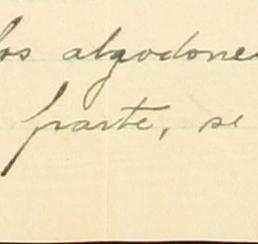 los algodone
parte, se